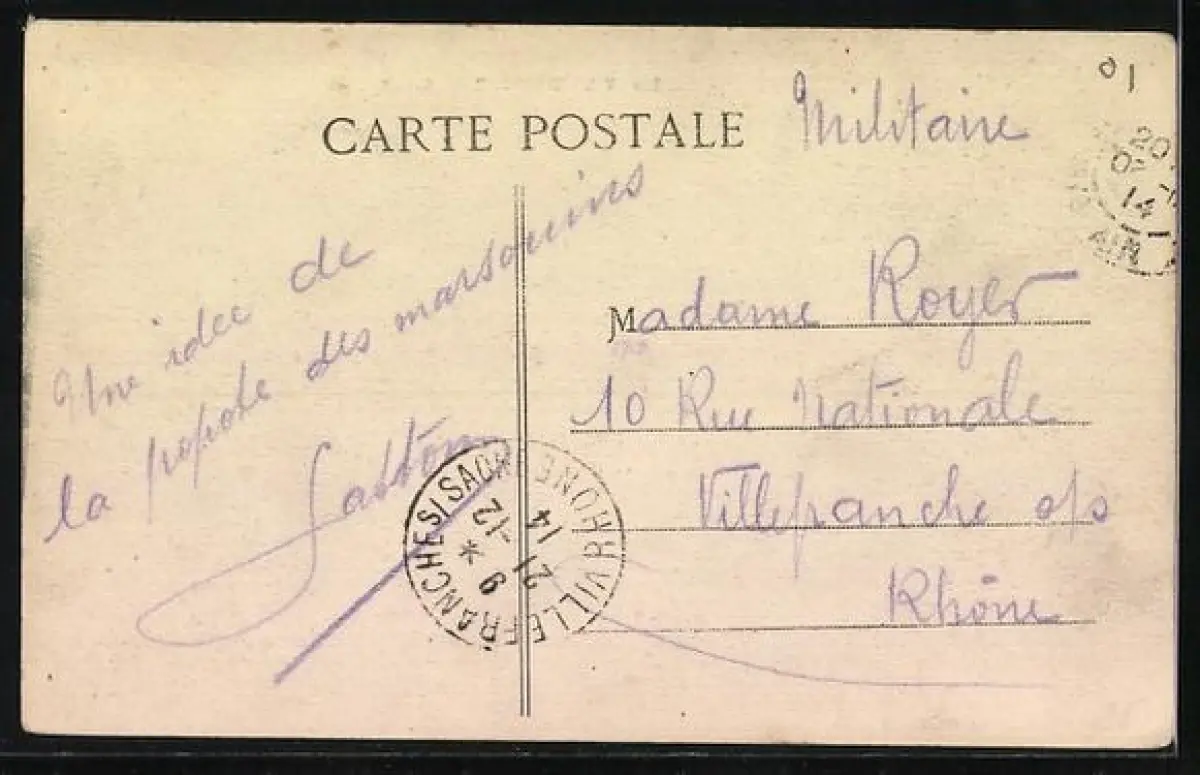 CARTE POSTALE
Militaire
Une idée de
la popote des marsouins
Gaston
Madame Royer
10 Rue Nationale
Villefranche s/s
Rhône
VILLEFRANCHE S/SAONE RHONE
9 * -12
21
14
20
14
AIN